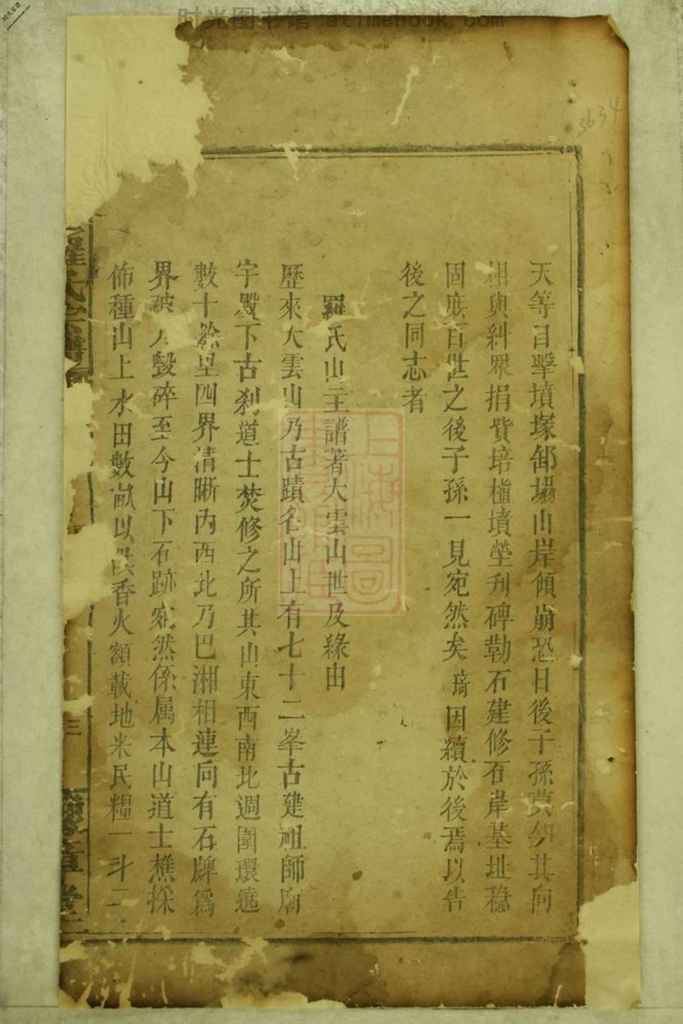 时光图书馆 atimebook.com
3634
天等目擊墳塚郤塲山岸傾崩恐日後子孫莫知其向
相與糾眾捐貲培植墳塋刋碑勒石建修石岸基址穩
固庶百世之後子孫一見宛然矣 因續於後焉以告
後之同志者
羅氏山主譜著大雲山世及緣由
歷來大雲山乃古蹟名山上有七十二峯古建祖師廟
宇殿下古刹道士焚修之所其山東西南北週圍環遶
數十餘里四界清晰內西北乃巴湘相連向有石牌爲
界 毀碎至今山下石跡宛然係属本山道士樵採
佈種山上水田數畝以 香火額載地米民糧一斗二
羅氏 譜
三
豫章堂